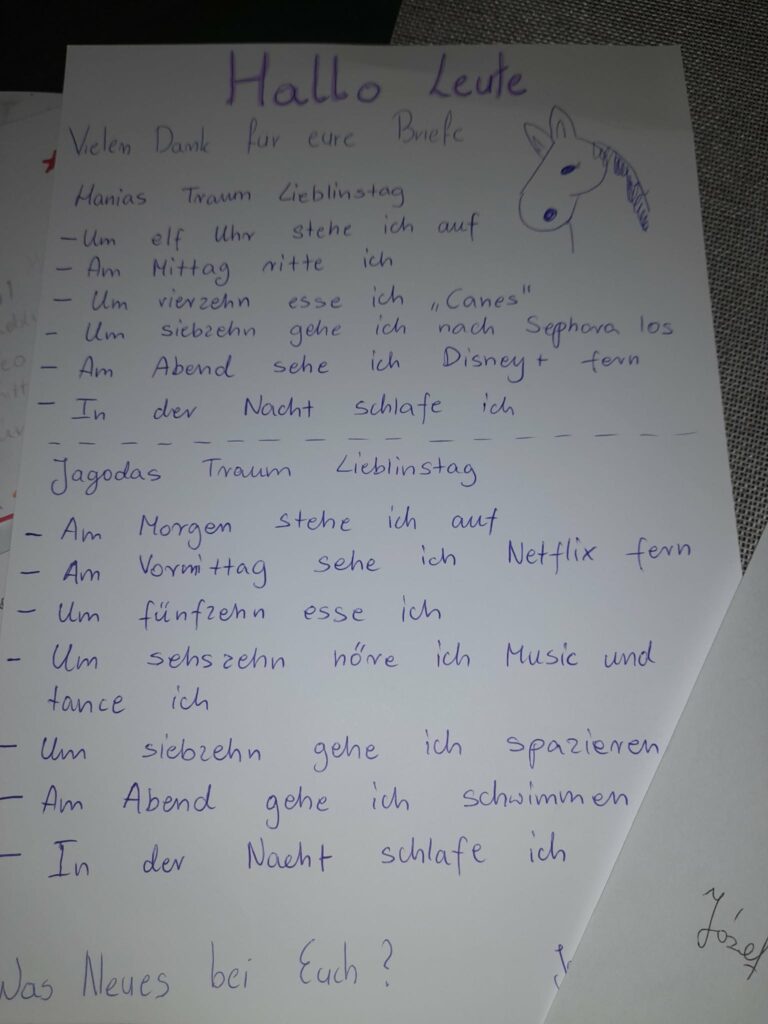 Hallo Leute
Vielen Dank für eure Briefe
Hanias Traum Lieblinstag
- Um elf Uhr stehe ich auf
- Am Mittag ritte ich
- Um vierzehn esse ich „Canes"
- Um siebzehn gehe ich nach Sephora los
- Am Abend sehe ich Disney+ fern
- In der Nacht schlafe ich
Jagodas Traum Lieblinstag
- Am Morgen stehe ich auf
- Am Vormittag sehe ich Netflix fern
- Um fünfzehn esse ich
- Um sehszehn höre ich Music und
tance ich
- Um siebzehn gehe ich spazieren
- Am Abend gehe ich schwimmen
- In der Nacht schlafe ich
Józef
Was Neues bei Euch?